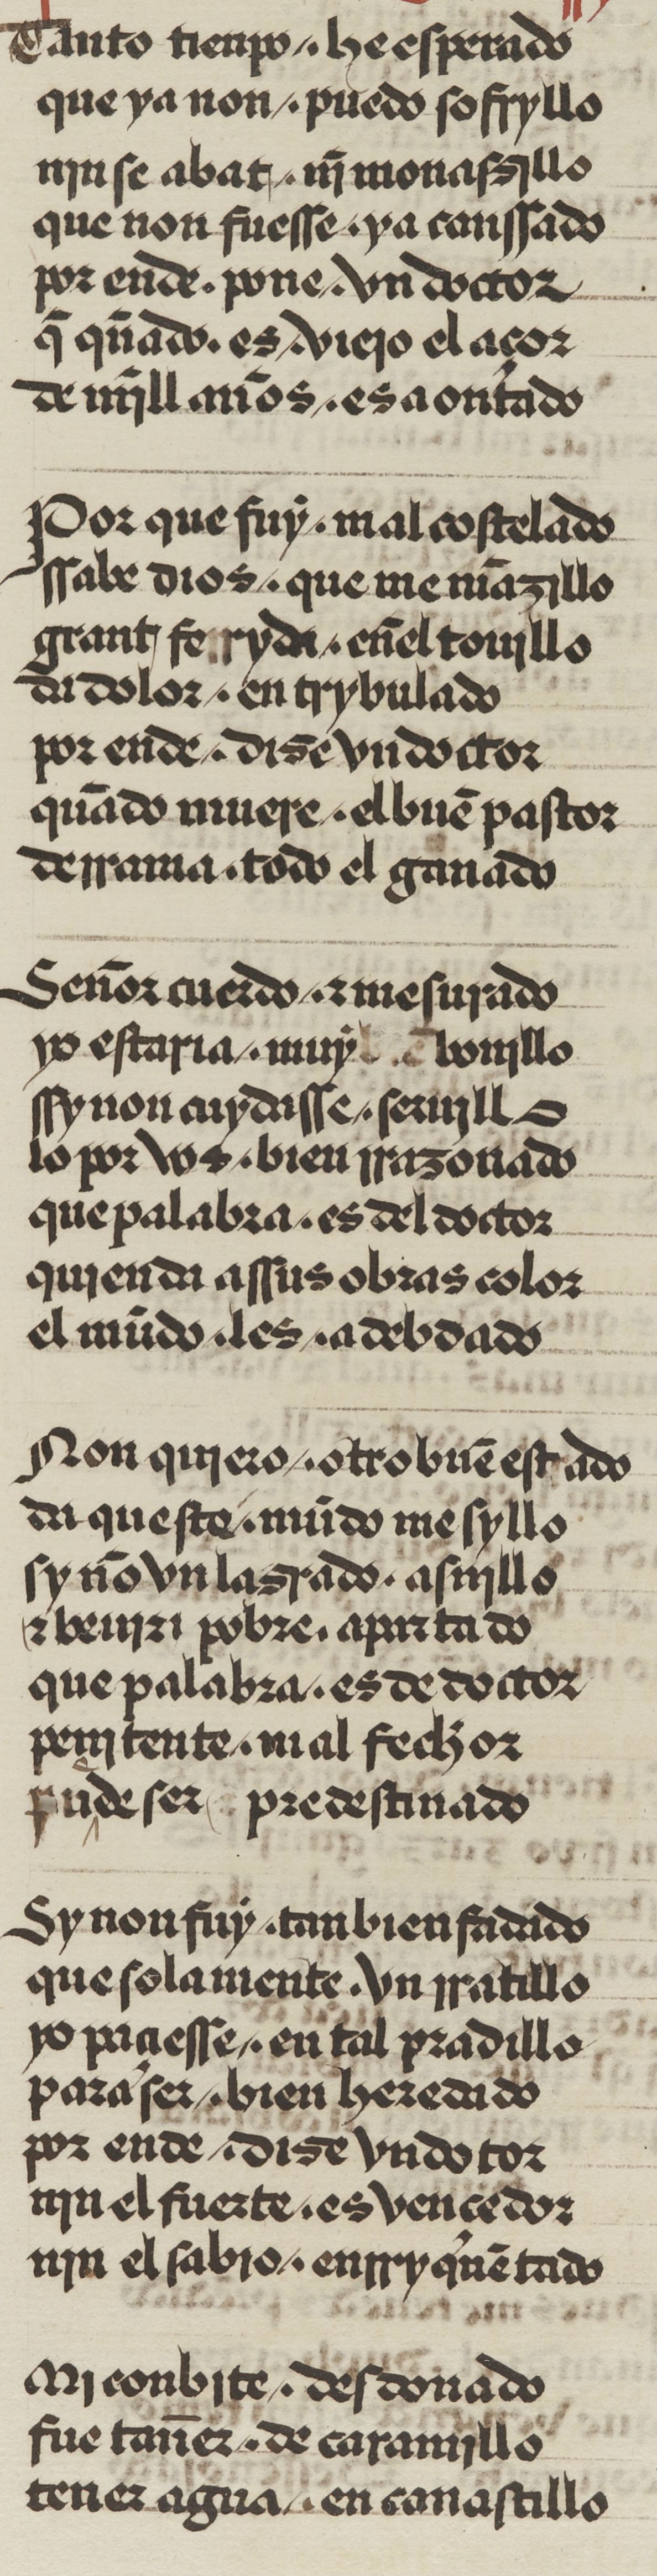 Tanto tienpo /. he esperado
que ya non /. puedo sofryllo
nin se abat /. nj̄ monaszillo
que non fuesse . ya canssado
por ende . pone /. vn doctor
q̄ qñado . es /. viejo el açor
de mjll años /. es aontado

Por que fuy . mal costelado
ssabe dios /. que me māzillo
grant ferryda /. eñl touillo
da dolor /. entrybulado
por ende /. dise vn doctor
quādo muere /. el buē pastor
derrama . todo el ganado

Señor cuerdo /. τ mesurado
yo estaria /. muy bonillo
ssy non cuydasse /. seruillo
lo por vos . bien rrazonado
que palabra /. es del doctor
quien da assus obras color
el mūdo . les /. adebdado

Non quiero /. otro buē estado
da queste /. mūdo mesyllo
sy nō vn lasrado . asnillo
τ beuiri pobre . apartado
que palabra /. es de doctor
penjtente /. mal fechor
puede ser predestinado

Sy non fuy . tan bien fadado
que solamente . vn rratillo
yo paçiesse /. en tal pradillo
para ser /. bien heredado
por ende /. dise vn dotor
nin el fuerte . es vencedor
nin el sabio /. enrryq̄ñētado

Mi conbite /. desdonado
fue tañer /. de caramillo
tener agua /. en canastillo